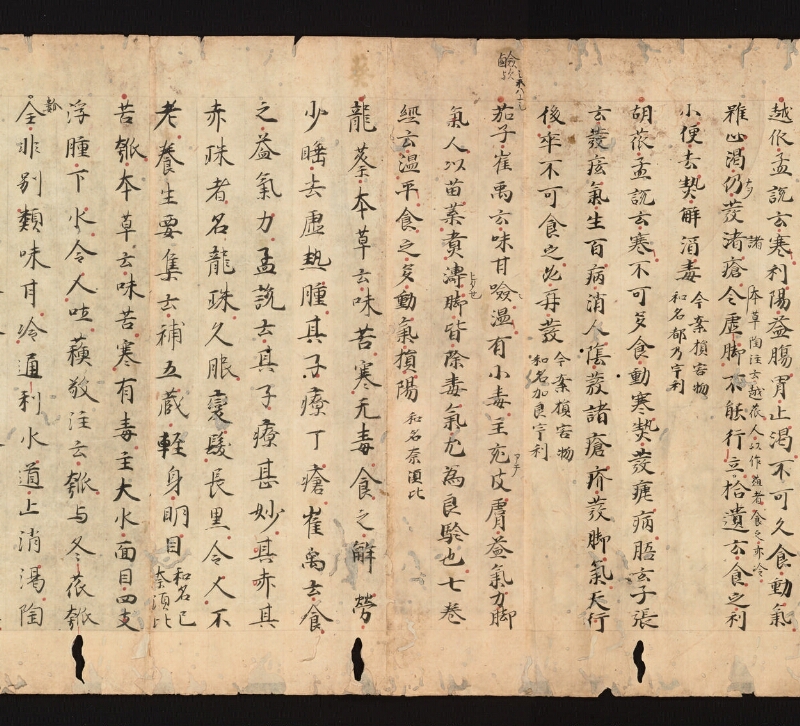 越瓜孟詵云寒利陽益腸胃止渴不可久食動氣
雖止渴仍發諸瘡令虛脚不能行立拾遺云食之利
本草陶注云越瓜人以作菹者食之亦冷
小便去熱解酒毒
今案損害物
和名都乃宇利
胡瓜孟詵云寒不可多食動寒熱發瘧病膳玄子張
云發痃氣生百病消人陰發諸瘡疥發脚氣天行
後卒不可食之必再發
今案損害物
和名加良宇利
茄子崔禹云味甘噞温有小毒主充皮膚益氣力脚
氣人以苗葉煮濤脚皆除毒氣尤為良驗也七卷
經云温平食之多動氣損陽
和名奈須比
龍葵本草云味苦寒无毒食之解勞
少睡去虛熱腫其子療丁瘡崔禹云食
之益氣力孟詵云其子療甚妙其赤其
赤珠者名龍珠久服變髮長黑令人不
老養生要集云補五蔵輕身明目
和名己
奈須比
苦瓠本草云味苦寒有毒主大水面目四支
浮腫下水令人吐蘓敬注云瓠与冬瓜瓠
全非別類味甘冷通利水道止消渴陶